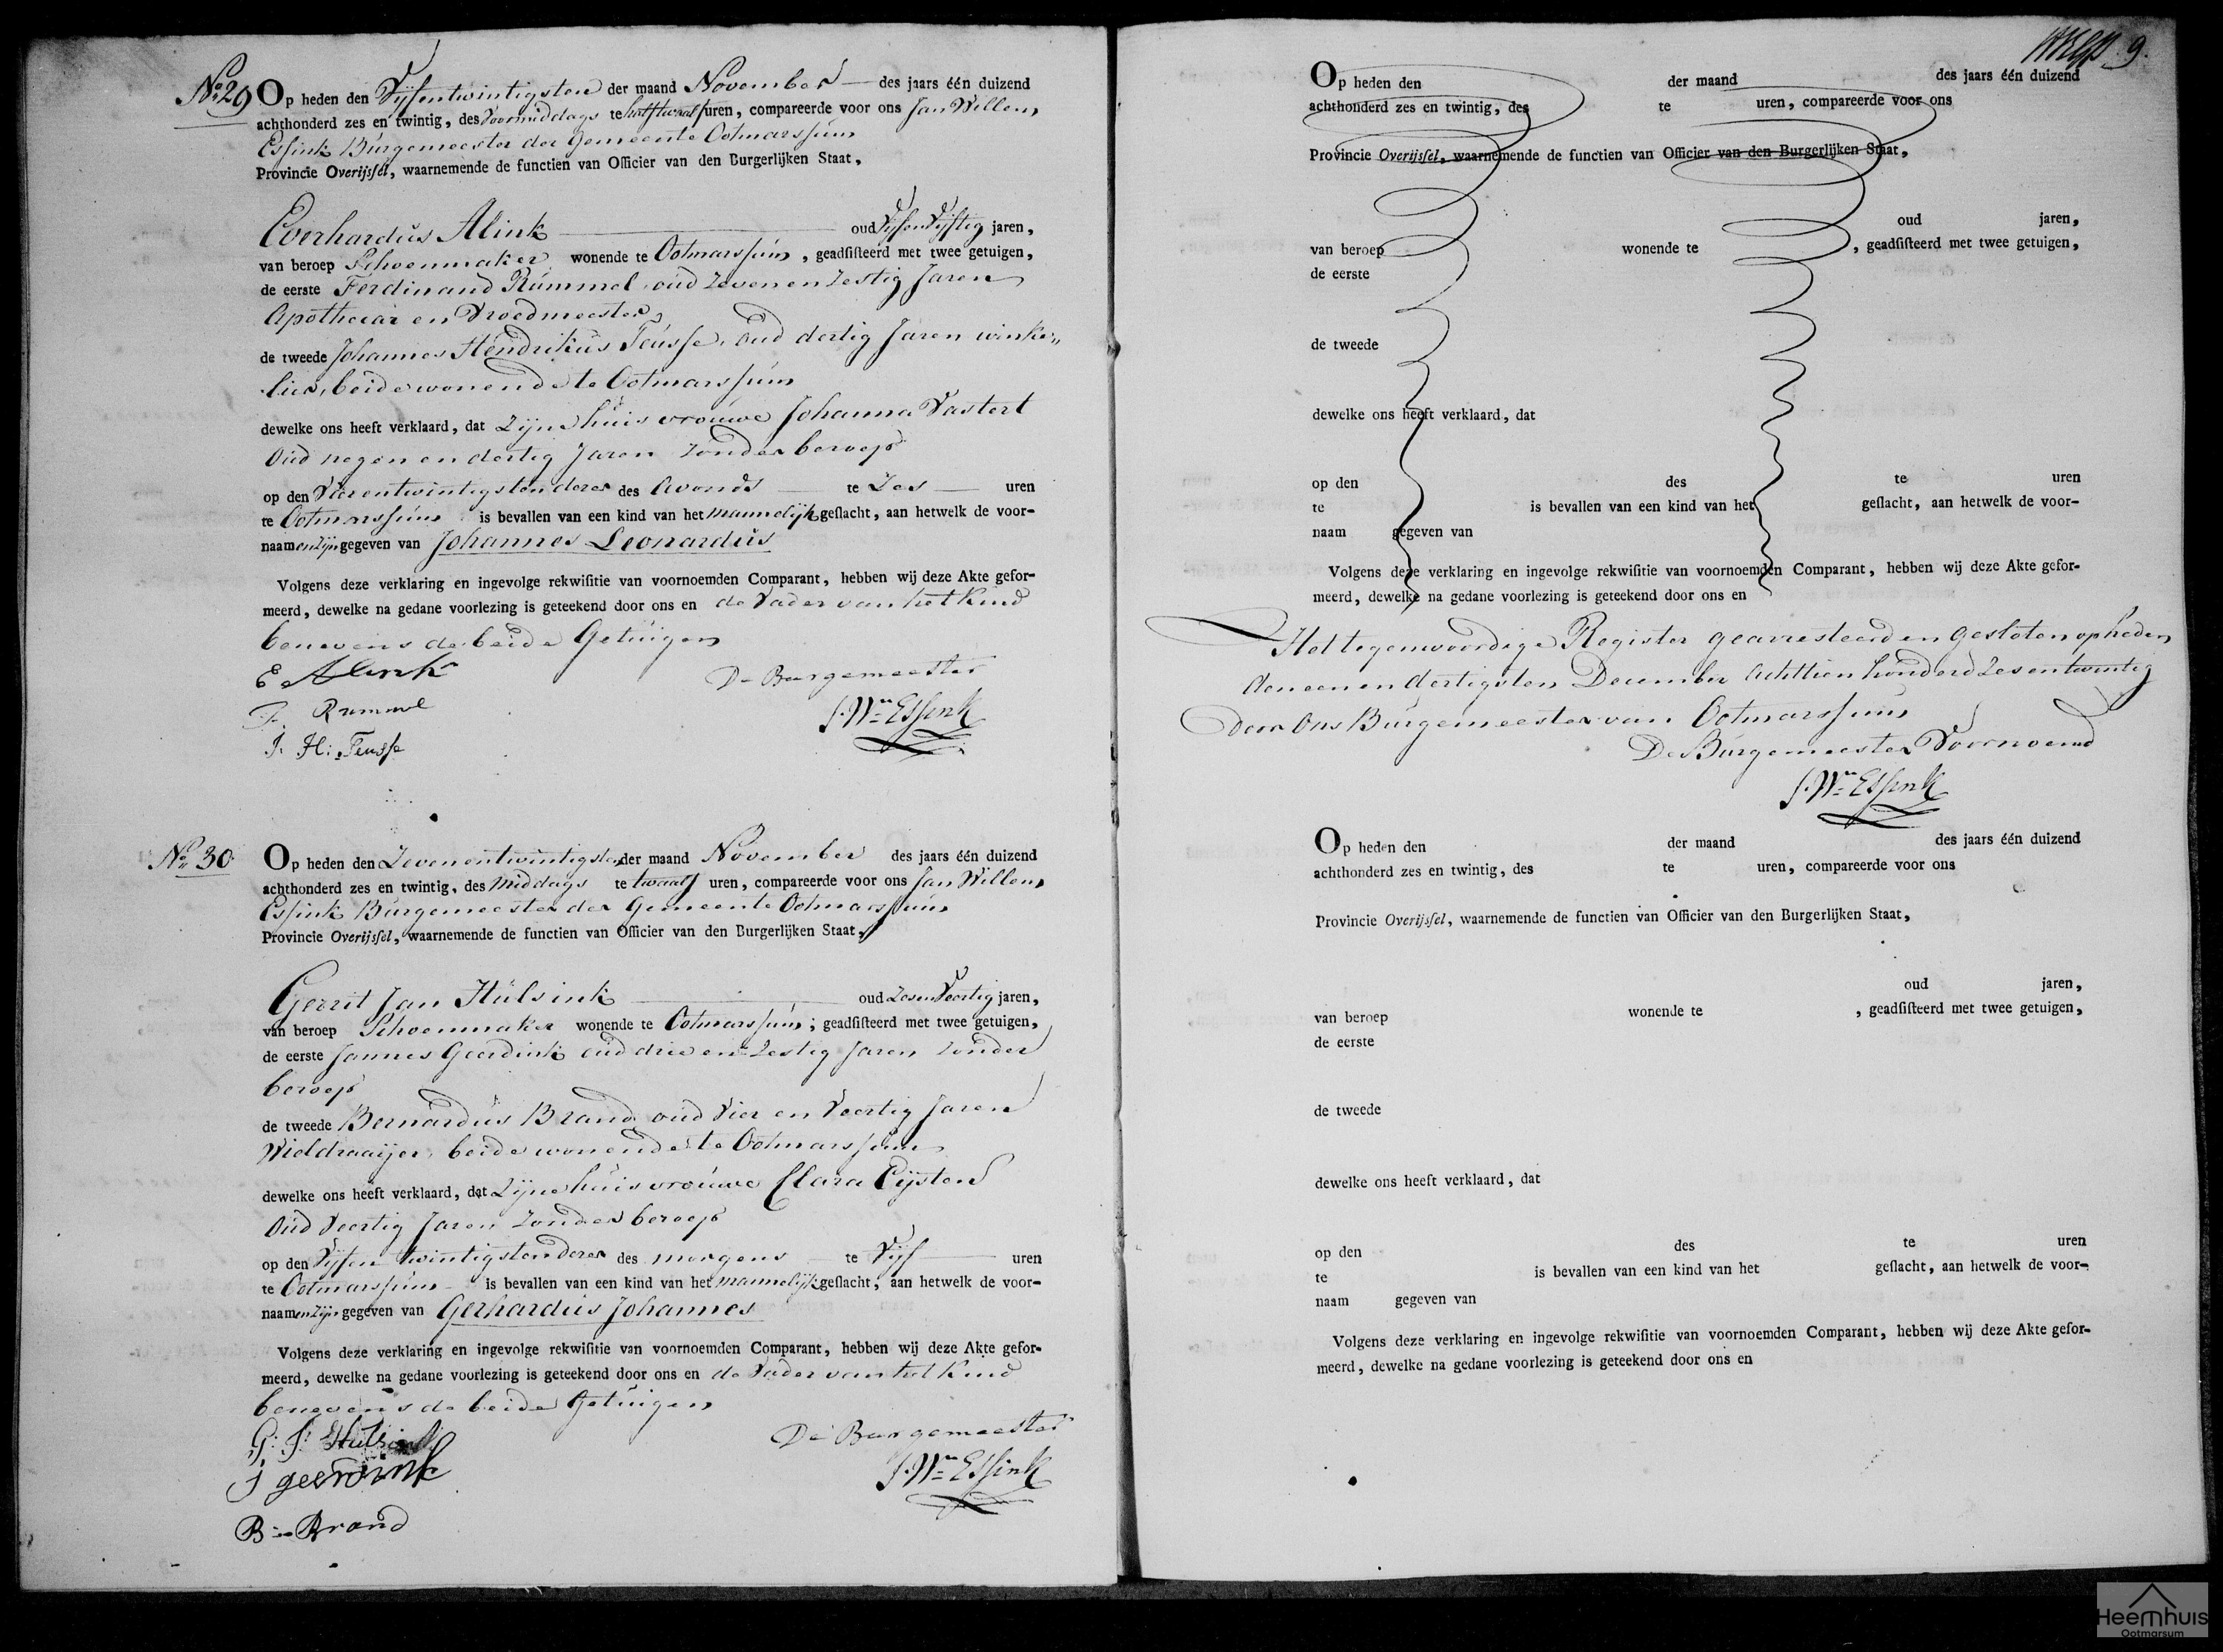 No 29 Op heden den Vijfentwintigsten der maand November des jaars één duizend
achthonderd zes en twintig, des Voormiddags te half twaalf uren, compareerde voor ons Jan Willem
Essink Burgemeester der Gemeente Ootmarssum
Provincie Overijsſel, waarnemende de functien van Officier van den Burgerlijken Staat,
Everhardus Alink oud Vijfen Vijftig jaren,
van beroep Schoenmaker wonende te Ootmarssum, geadſiſteerd met twee getuigen,
de eerste Ferdinand Rummel oud Zevenen Zestig Jaren
Apothecar en Vroedmeester
de tweede Johannes Hendrikus Teusse, oud dertig Jaren winke„
lier, beide wonende te Ootmarssum
dewelke ons heeft verklaard, dat Zijne huisvrouwe Johanna Vastert
Oud negen en dertig Jaren Zonder beroep
op den Vierentwintigsten dezer des Avonds te Zes uren
te Ootmarssum is bevallen van een kind van het mannelijk geſlacht, aan hetwelk de voor-
naamen zijn gegeven van Johannes Leonardus
Volgens deze verklaring en ingevolge rekwiſitie van voornoemden Comparant, hebben wij deze Akte gefor-
meerd, dewelke na gedane voorlezing is geteekend door ons en de Vader van het Kind
benevens de beide Getuigen
E Alink
F. Rummel
J. H: Teusse
De Burgemeester
J. Wm Essink
No 30 Op heden den Zevenentwintigsten der maand November des jaars één duizend
achthonderd zes en twintig, des Middags te twaalf uren, compareerde voor ons Jan Willem
Essink Burgemeester der Gemeente Ootmarssum
Provincie Overijsſel, waarnemende de functien van Officier van den Burgerlijken Staat,
Gerrit Jan Hulsink oud Zesen Veertig jaren,
van beroep Schoenmaker wonende te Ootmarssum; geadſiſteerd met twee getuigen,
de eerste Jannes Geerdink oud drie en Zestig Jaren Zonder
beroep
de tweede Bernardus Brand oud Vier en Veertig Jaren
Wieldraaijer, beide wonende te Ootmarssum
dewelke ons heeft verklaard, dat Zijne huisvrouwe Clara Eijsten
Oud Veertig Jaren Zonder beroep
op den Vijfen twintigsten dezer des morgens te Vijf uren
te Ootmarssum is bevallen van een kind van het mannelijk geſlacht, aan hetwelk de voor-
naamen zijn gegeven van Gerhardus Johannes
Volgens deze verklaring en ingevolge rekwiſitie van voornoemden Comparant, hebben wij deze Akte gefor-
meerd, dewelke na gedane voorlezing is geteekend door ons en de Vader van het Kind
benevens de beide Getuigen
G: J: Hulsink
J geerdink
B: Brand
De Burgemeester
J. Wm Essink
9.
Op heden den der maand des jaars één duizend
achthonderd zes en twintig, des te uren, compareerde voor ons
Provincie Overijsſel, waarnemende de functien van Officier van den Burgerlijken Staat,
oud jaren,
van beroep wonende te , geadſiſteerd met twee getuigen,
de eerste
de tweede
dewelke ons heeft verklaard, dat
op den des te uren
te is bevallen van een kind van het geſlacht, aan hetwelk de voor-
naam gegeven van
Volgens deze verklaring en ingevolge rekwiſitie van voornoemden Comparant, hebben wij deze Akte gefor-
meerd, dewelke na gedane voorlezing is geteekend door ons en
Het tegenwoordige Register gearresteerd en gesloten op heden
den een en dertigsten December Achttien honderd Zes en twintig
door Ons Burgemeester van Ootmarssum
De Burgemeester Voornoemd
J. Wm Essink
Op heden den der maand des jaars één duizend
achthonderd zes en twintig, des te uren, compareerde voor ons
Provincie Overijsſel, waarnemende de functien van Officier van den Burgerlijken Staat,
oud jaren,
van beroep wonende te , geadſiſteerd met twee getuigen,
de eerste
de tweede
dewelke ons heeft verklaard, dat
op den des te uren
te is bevallen van een kind van het geſlacht, aan hetwelk de voor-
naam gegeven van
Volgens deze verklaring en ingevolge rekwiſitie van voornoemden Comparant, hebben wij deze Akte gefor-
meerd, dewelke na gedane voorlezing is geteekend door ons en
Heemhuis
Ootmarsum